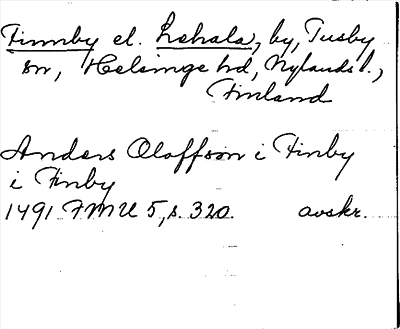 Finnby el. Lahala, by, Tusby
sn, Helsinge hd, Nylands l.,
Finland
Anders Oloffson i Finby
i Finby
1491 FMU 5, s. 320. avskr.